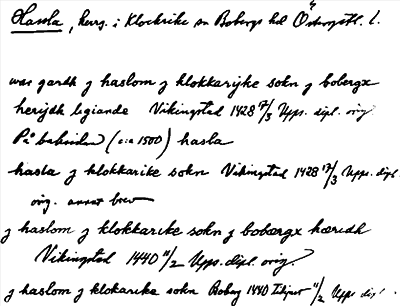 Hassla, herrg. i Klockrike sn Bobergs hd Östergötl. l.
waar gardh j haslom j klokkarijke sokn j bobergx
herijdh ligiande Vikingstad 1428 17/3 Upps. dipl. orig.
På baksidan (c:a 1500) hasla
hasla j klokkarike sokn Vikingstad 1428 17/3 Upps. dipl.
orig. annat brev
j haslom j klokkarike sokn j bobærgx hæridh
Vikingstad 1440 11/2 Upps. dipl. orig.
j haslom j klokarike sokn Boberg 1440 11/2 Upps dipl.